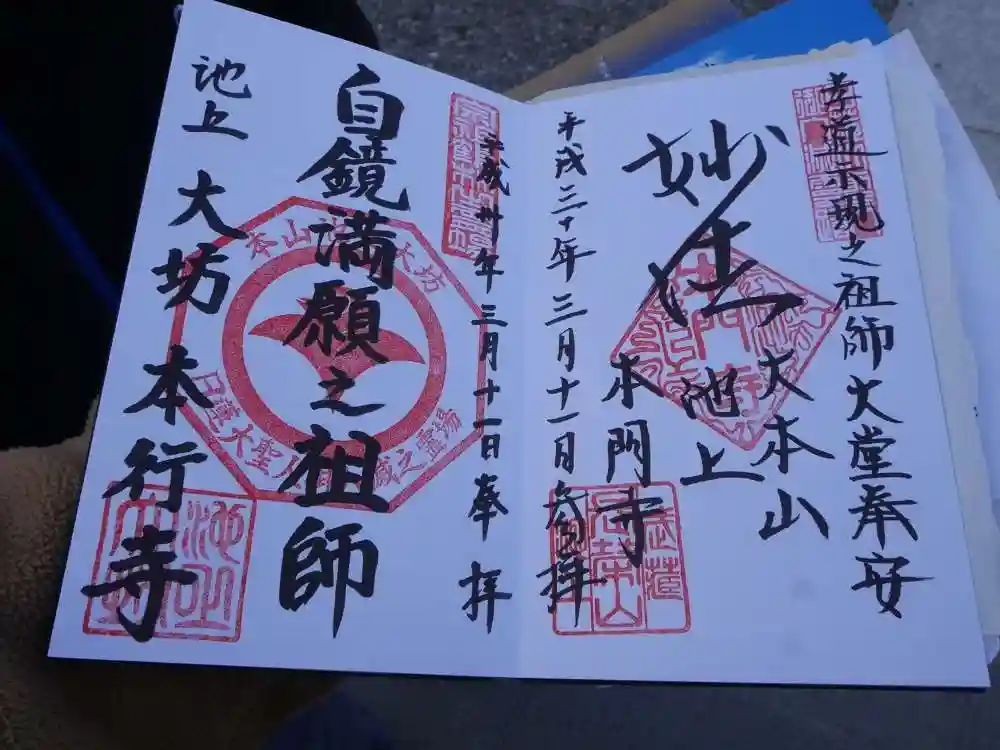 孝道示現之祖師大堂奉安
妙法
大本山
池上
本門寺
平成三十年三月十一日参拝
平成卅年三月十一日奉拝
自鏡満願之祖師
本山池上大坊
日蓮大聖人 滅之霊場
池上 大坊 本行寺
池上